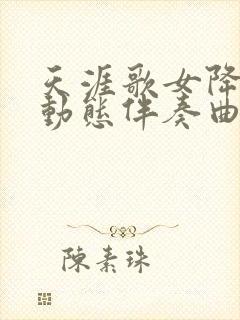 天涯歌女降
動態伴奏曲
陳素珠